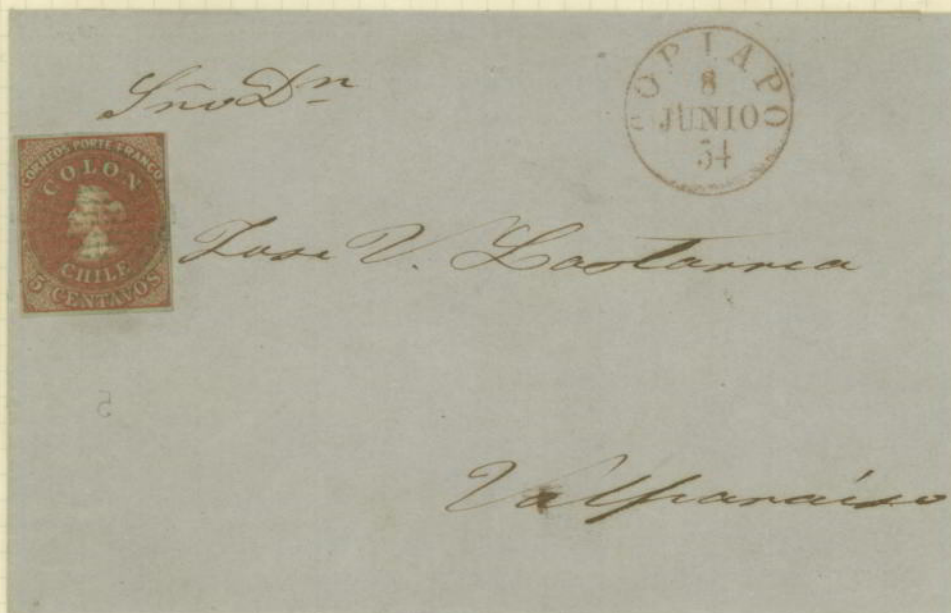 Sño Dn
COPIAPO
8
JUNIO
54
CORREOS PORTE FRANCO
COLON
CHILE
5 CENTAVOS
Jose V. Lastarrea
5
Valparaíso